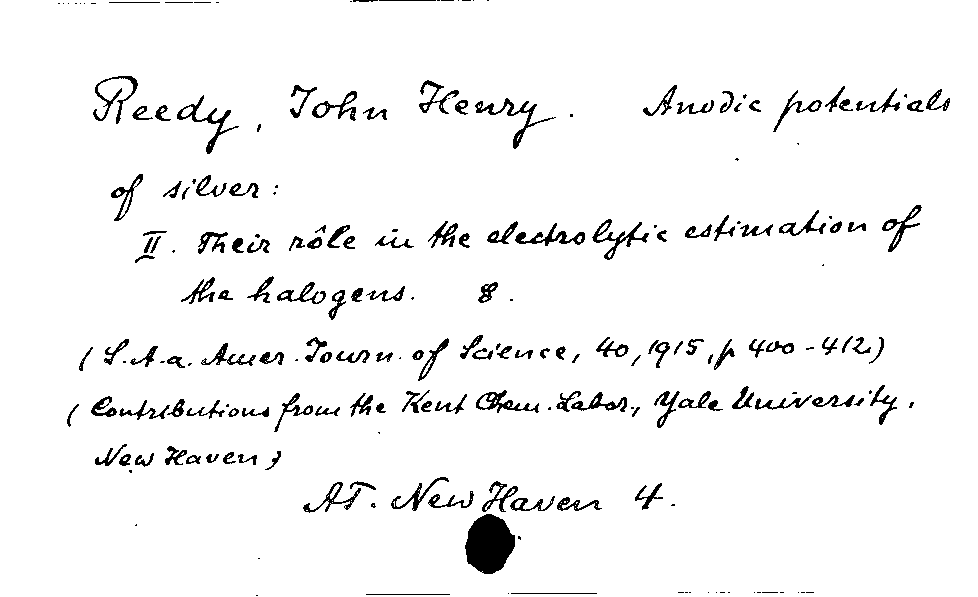 Reedy, John Henry. Anodic potentials
of silver:
II. Their rôle in the electrolytic estimation of
the halogens. 8.
(S.A.a. Amer. Journ. of Science, 40, 1915, p 400-412)
(Contributions from the Kent Chem. Labor., Yale University.
New Haven)
AT. New Haven 4.